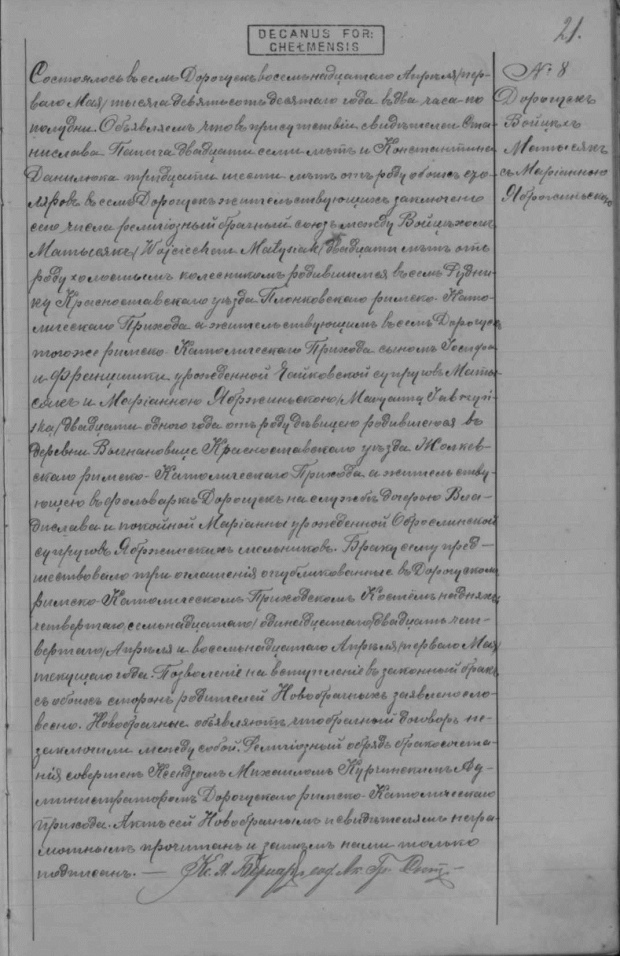 DECANUS FOR:
CHEŁMENSIS
21.
№ 8
Дорогускъ
Войцѣхъ
Матысякъ
съ Маріанною
Состоялось въ селѣ Дорогускъ восемнадцатаго Апрѣля/пер-
ваго Мая/тысяча девятьсотъ десятаго года въ два часа по
полудни. Объявляемъ что въ присутствіи свидѣтелей Ста-
нислава двадцати семи лѣтъ и Константина
Данилюка тридцати шести лѣтъ отъ роду обоихъ сто-
ляровъ въ селѣ Дорогускъ жительствующихъ заключено
сего числа религіозный брачный союзъ между Войцѣхомъ
Матысякъ/Wojciechem Matysiak/двадцати лѣтъ отъ
роду холостымъ колесникомъ родившимся въ селѣ Рудни-
ку Красноставскаго уѣзда Плонковскаго римско-Като-
лическаго Прихода а жительствующимъ въ селѣ Дорогускъ
тогоже римско-Католическаго Прихода сыномъ Іосифа
и Францишки урожденной Чайковской супруговъ Маты-
сякъ и Маріанною
двадцати одного года отъ роду дѣвицею родившеюся въ
деревни Красноставскаго уѣзда Жолкев-
скаго римско-Католическаго Прихода а жительству-
ющею въ фольваркѣ Дорогускъ на службѣ дочерью Вла-
дислава и покойной Маріанны урожденной
супруговъ мельниковъ. Браку сему пред-
шествовало три оглашенія опубликованные въ Дорогускомъ
римско-Католическомъ Приходскомъ Костёлѣ на дняхъ
четвертаго/семьнадцатаго/одинадцатаго/двадцать чет-
вертаго/Апрѣля и восемнадцатаго Апрѣля/перваго Мая/
текущаго года. Позволеніе на вступленіе въ законный бракъ
съ обоихъ сторонъ родителей Новобрачныхъ заявлено сло-
весно. Новобрачные объявляютъ что брачный договоръ не-
заключили между собой. Религіозный обрядъ бракосочета-
нія совершенъ Ксендзомъ Михаиломъ Ад-
министраторомъ Дорогускаго римско-Католическаго
прихода. Актъ сей Новобрачнымъ и свидѣтелямъ негра-
мотнымъ прочитанъ и затѣмъ нами только
подписанъ. —